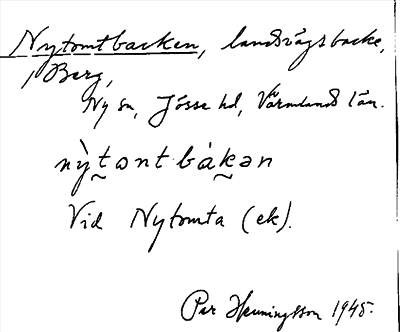 Nytomtbacken, landsvägsbacke,
i Berg,
Ny sn, Jösse hd, Värmlands län.
nỳt̰ɷntbák̰ən
Vid Nytomta (ek).
Per Henningsson 1945.